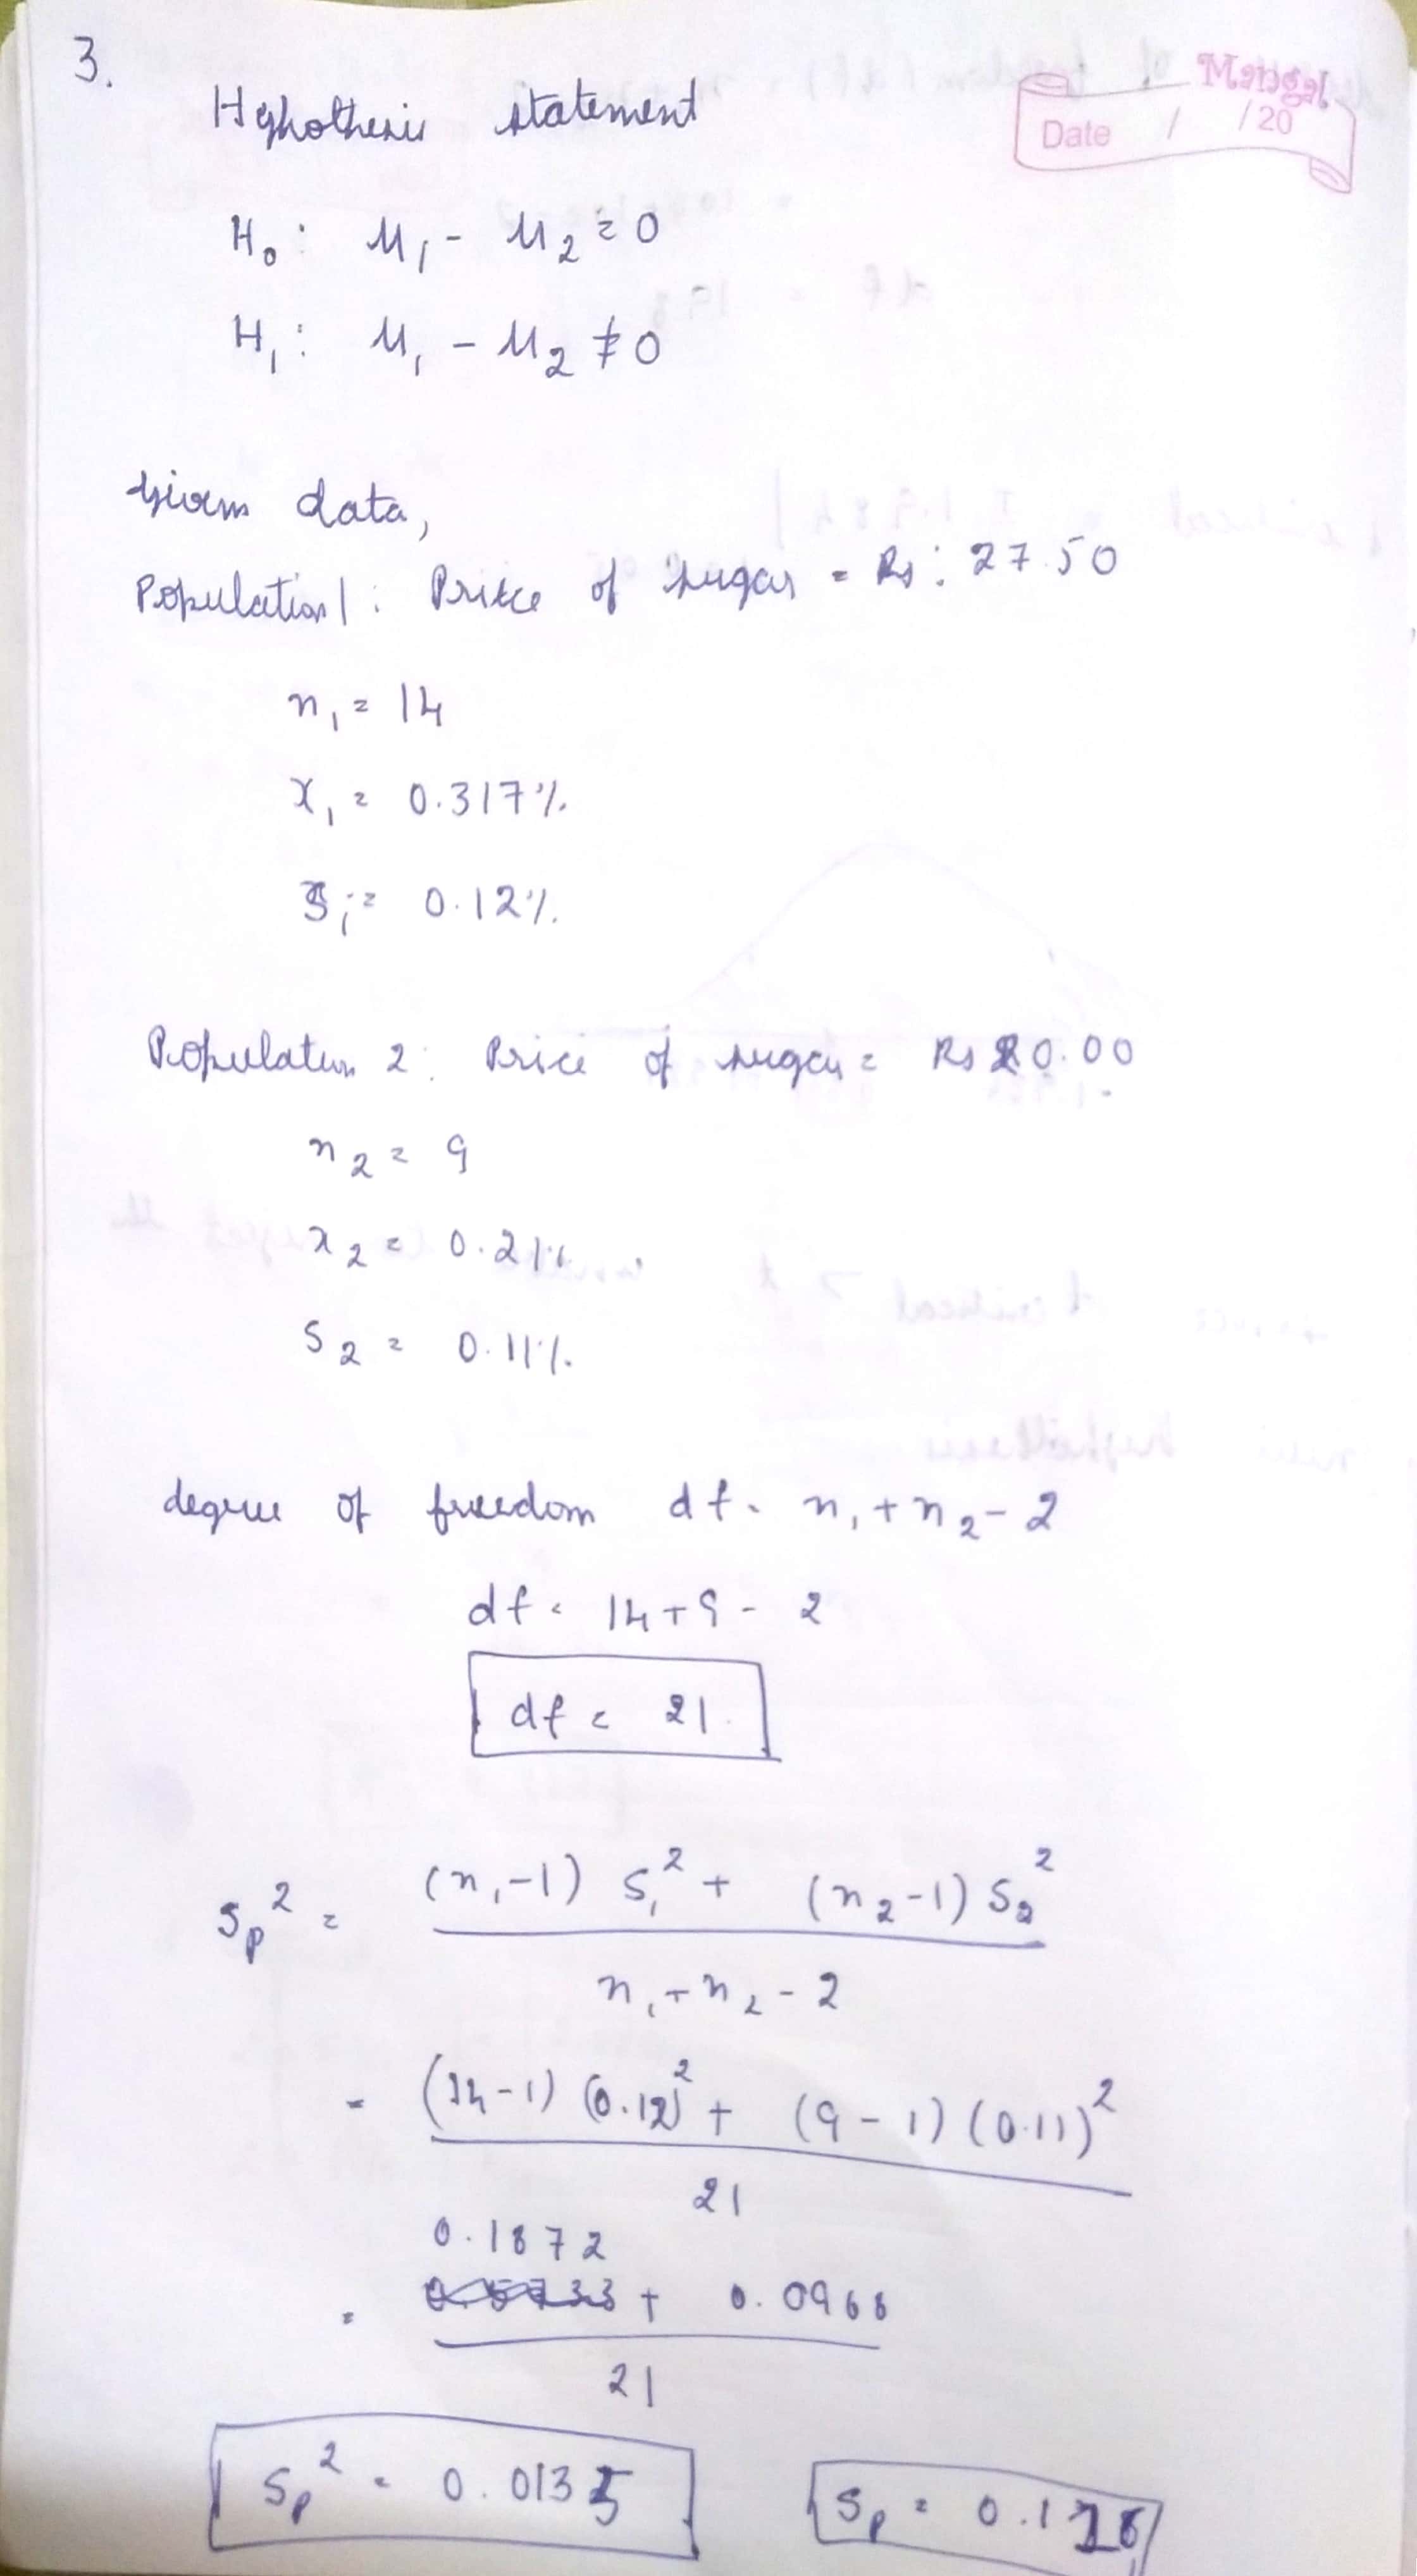 3.
Mangal
Date / /20
Hyphothesis statement
H₀: μ₁ - μ₂ = 0
H₁: μ₁ - μ₂ ≠ 0
Given data,
Population 1: Price of sugar = Rs: 27.50
n₁ = 14
x₁ = 0.317%
s₁ = 0.12%
Population 2: Price of sugar = Rs 20.00
n₂ = 9
x₂ = 0.21%
s₂ = 0.11%
degree of freedom df = n₁ + n₂ - 2
df = 14 + 9 - 2
df = 21
Sp² = (n₁-1) s₁² + (n₂-1) s₂²
n₁ + n₂ - 2
= (14-1) (0.12)² + (9-1) (0.11)²
21
0.1872
= + 0.0968
21
Sp² = 0.0135
Sp = 0.116